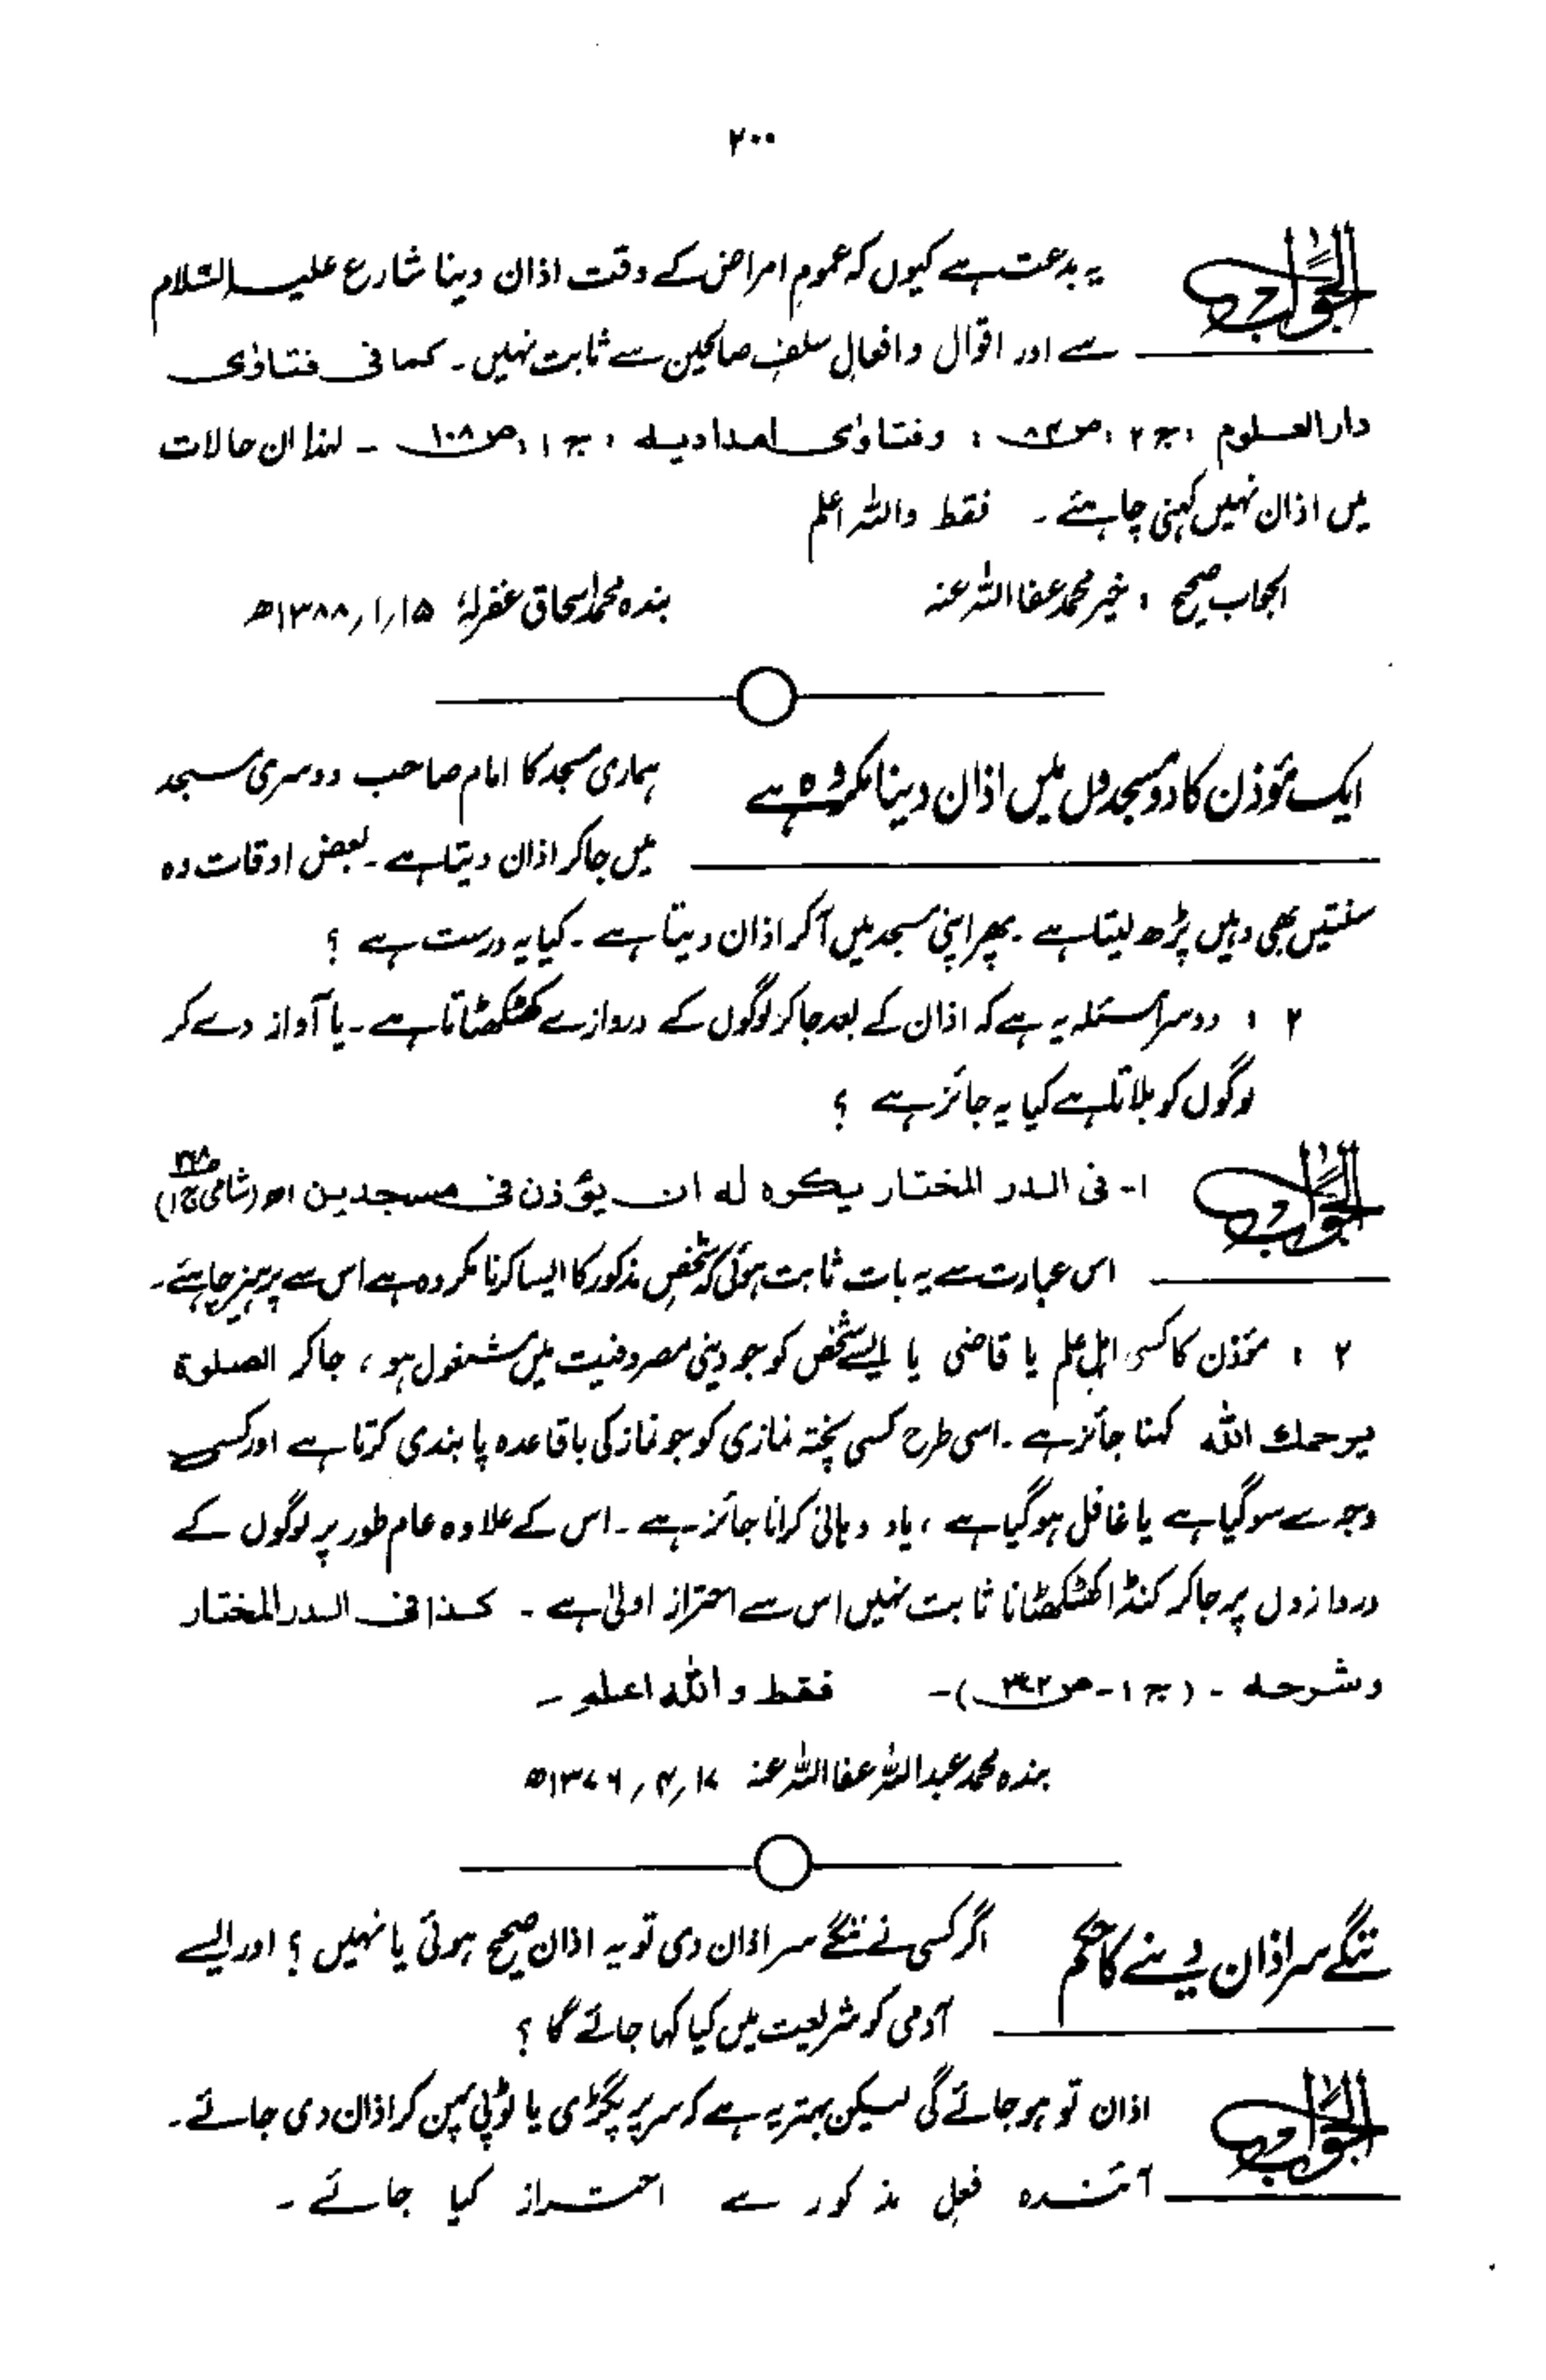 ۲۰۰
الجواب یہ بدعت ہے کیوں کہ عموم امراض کے وقت اذان دینا شارع علیہ السّلام
سے اور اقوال و افعالِ سلفِ صالحین سے ثابت نہیں ۔ کما فی فتاوٰی
دارالعلوم ، ج ۲ ، ص ؛ وفتاوٰی امدادیه ، ج ۱ ، ص ۱۰۸ ۔ لہٰذا ان حالات
میں اذان نہیں کہنی چاہئے ۔ فقط واللہ اعلم
الجواب صحیح ، خیر محمد عفا اللہ عنہ بندہ محمد اسحاق غفرلہٗ ۱۵ ؍ ۱ ؍ ۱۳۸۸ھ
ایک مؤذن کا دو مسجدوں میں اذان دینا مکروہ ہے ہماری مسجد کا امام صاحب دوسری مسجد
میں جا کر اذان دیتا ہے ۔ بعض اوقات وہ
سنتیں بھی وہیں پڑھ لیتا ہے ۔ پھر اپنی مسجد میں آ کر اذان دیتا ہے ۔ کیا یہ درست ہے ؟
۲ ؛ دوسرا مسئلہ یہ ہے کہ اذان کے بعد جا کر لوگوں کے دروازے کھٹکھٹاتا ہے ۔ یا آواز دے کر
لوگوں کو بلاتا ہے کیا یہ جائز ہے ؟
الجواب ۱۔ فی الدر المختار یکره له ان یؤذن فی مسجدین اھ (شامی ج۱)
اس عبارت سے یہ بات ثابت ہوئی کہ شخصِ مذکور کا ایسا کرنا مکروہ ہے اس سے پرہیز چاہئے ۔
۲ ؛ مؤذن کا کسی اہلِ علم یا قاضی یا ایسے شخص کو جو دینی مصروفیت میں مشغول ہو ، جا کر الصلوة
یرحمك الله کہنا جائز ہے ۔ اسی طرح کسی پختہ نمازی کو جو نماز کی باقاعدہ پابندی کرتا ہے اور کسی
وجہ سے سو گیا ہے یا غافل ہو گیا ہے ، یاد دہانی کرانا جائز ہے ۔ اس کے علاوہ عام طور پر لوگوں کے
دروازوں پر جا کر کنڈا کھٹکھٹانا ثابت نہیں اس سے احتراز اولیٰ ہے ۔ کذا فی الدر المختار
وشرحه ۔ (ج ۱ ۔ ص )۔ فقط والله اعلم ۔
بندہ محمد عبداللہ عفا اللہ عنہ ۱۷ ؍ ۴ ؍ ۱۳۷۶ھ
ننگے سر اذان دینے کا حکم اگر کسی نے ننگے سر اذان دی تو یہ اذان صحیح ہوئی یا نہیں ؟ اور ایسے
آدمی کو شریعت میں کیا کہا جائے گا ؟
الجواب اذان تو ہو جائے گی لیکن بہتر یہ ہے کہ سر پر پگڑی یا ٹوپی پہن کر اذان دی جائے ۔
آئندہ فعلِ مذکور سے احتراز کیا جائے ۔